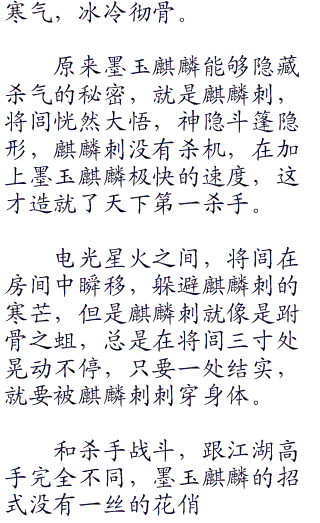 寒气，冰冷彻骨。
原来墨玉麒麟能够隐藏
杀气的秘密，就是麒麟刺，
将闾恍然大悟，神隐斗篷隐
形，麒麟刺没有杀机，在加
上墨玉麒麟极快的速度，这
才造就了天下第一杀手。
电光星火之间，将闾在
房间中瞬移，躲避麒麟刺的
寒芒，但是麒麟刺就像是跗
骨之蛆，总是在将闾三寸处
晃动不停，只要一处结实，
就要被麒麟刺刺穿身体。
和杀手战斗，跟江湖高
手完全不同，墨玉麒麟的招
式没有一丝的花俏